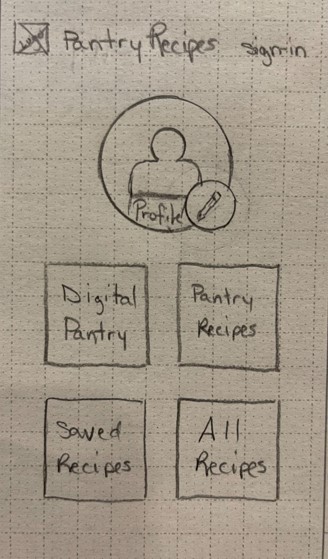 Pantry Recipes signin
Profile
Digital
Pantry
Pantry
Recipes
Saved
Recipes
All
Recipes